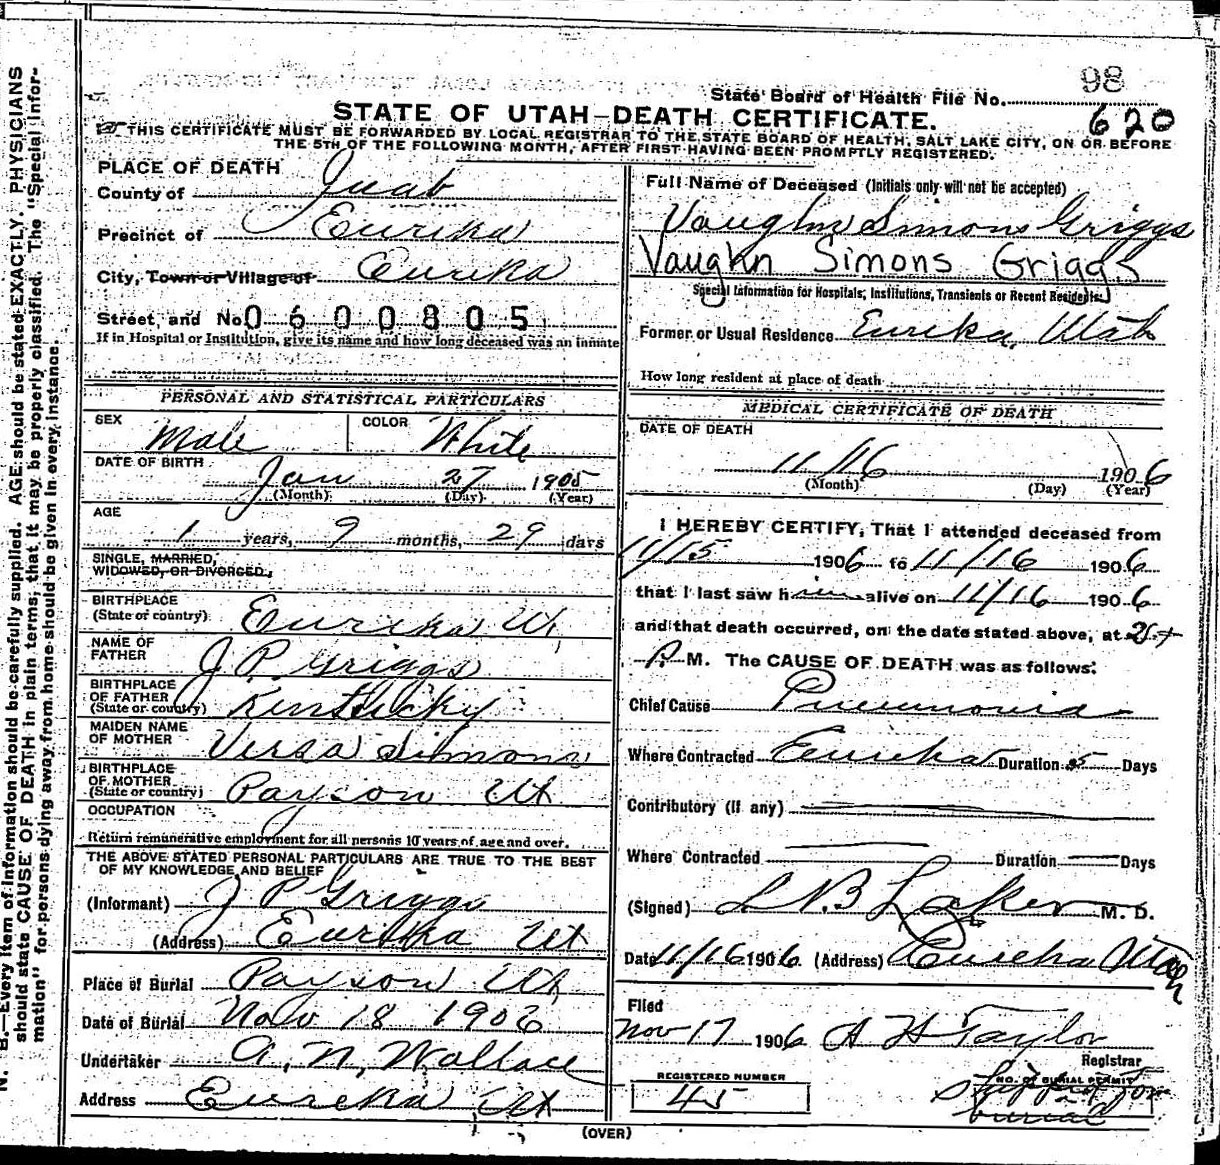 98
State Board of Health File No.
620
STATE OF UTAH-DEATH CERTIFICATE.
THIS CERTIFICATE MUST BE FORWARDED BY LOCAL REGISTRAR TO THE STATE BOARD OF HEALTH, SALT LAKE CITY, ON OR BEFORE
THE 5TH OF THE FOLLOWING MONTH, AFTER FIRST HAVING BEEN PROMPTLY REGISTERED.
PLACE OF DEATH
County of Juab
Precinct of Eureka
City, Town or Village of Eureka
Street, and No 0600805
If in Hospital or Institution, give its name and how long deceased was an inmate
PERSONAL AND STATISTICAL PARTICULARS
SEX Male COLOR White
DATE OF BIRTH Jan 27 1905
(Month) (Day) (Year)
AGE
1 years, 9 months, 29 days
SINGLE, MARRIED,
WIDOWED, OR DIVORCED.
BIRTHPLACE
(State or country) Eureka Ut
NAME OF
FATHER J P Griggs
BIRTHPLACE
OF FATHER
(State or country) Kentucky
MAIDEN NAME
OF MOTHER Versa Simons
BIRTHPLACE
OF MOTHER
(State or country) Payson Ut
OCCUPATION
Return remunerative employment for all persons 10 years of age and over.
THE ABOVE STATED PERSONAL PARTICULARS ARE TRUE TO THE BEST
OF MY KNOWLEDGE AND BELIEF
(Informant) J P Griggs
(Address) Eureka Ut
Place of Burial Payson Ut
Date of Burial Nov 18 1906
Undertaker A. N. Wallace
Address Eureka Ut
Full Name of Deceased (Initials only will not be accepted)
Vaughn Simons Griggs
Vaughn Simons Griggs
Special Information for Hospitals, Institutions, Transients or Recent Residents.
Former or Usual Residence Eureka, Utah
How long resident at place of death
MEDICAL CERTIFICATE OF DEATH
DATE OF DEATH
11/16 1906
(Month) (Day) (Year)
I HEREBY CERTIFY, That I attended deceased from
11/15 1906 to 11/16 1906
that I last saw him alive on 11/16 1906
and that death occurred, on the date stated above, at
M. The CAUSE OF DEATH was as follows:
Chief Cause Pneumonia
Where Contracted Eureka Duration 5 Days
Contributory (if any)
Where Contracted Duration Days
(Signed) Laker M. D.
Date 11/16 1906 (Address) Eureka Utah
Filed
Nov 17 1906 A H Taylor
Registrar
REGISTERED NUMBER
45
NO. OF BURIAL PERMIT
Shipped for
burial
(OVER)
N. B.—Every item of information should be carefully supplied. AGE should be stated EXACTLY. PHYSICIANS
should state CAUSE OF DEATH in plain terms, that it may be properly classified. The "Special Infor-
mation" for persons dying away from home should be given in every instance.